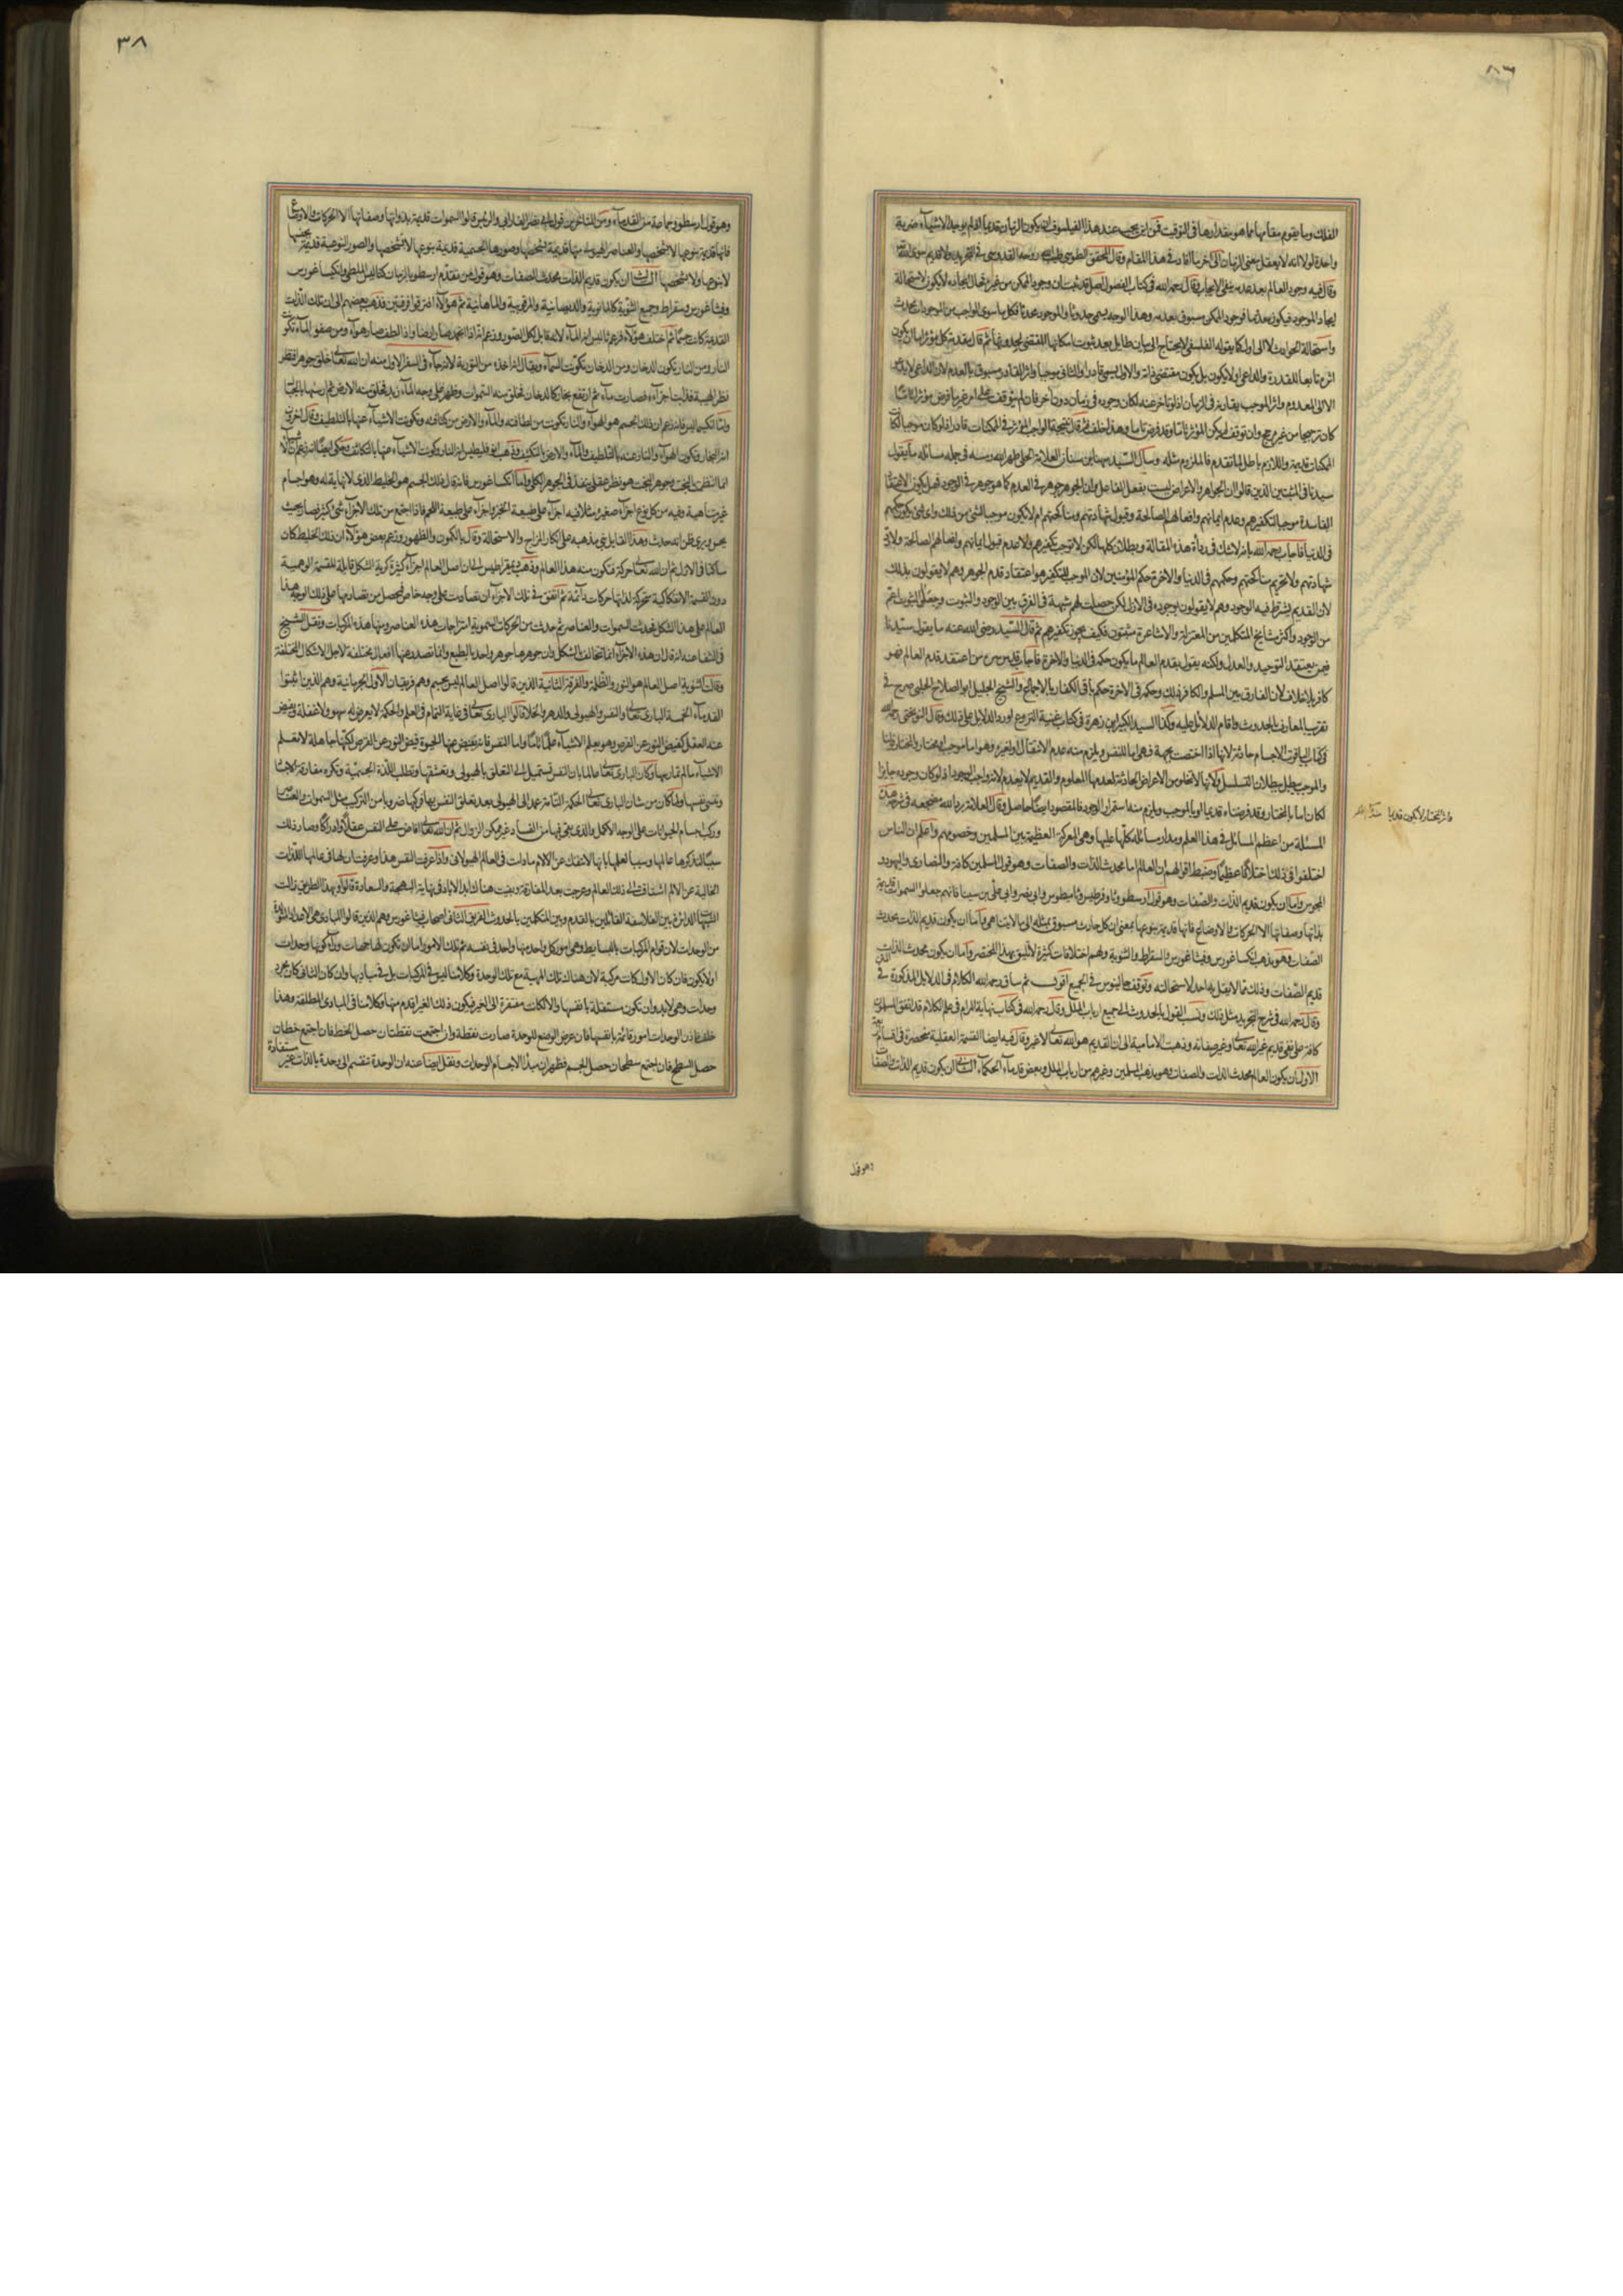 الفلك وما يقوم مقامها مما هو مقدارها فى التوقيت فمن اين يجب عند هذا الفيلسوف ان يكون الزمان قديما
واحدة لولا انه لا يعقل معنى الزمان الى آخر ما افاد فى هذا المقام وقال المحقق الطوسى فى التجريد ولا قديم سوى الله
وقال فيه وجود العالم بعد عدمه ينفى الايجاب وقال رحمه الله فى كتاب الفصول قد ثبت ان وجود الممكن من غيره فحال ايجاده لا يكون موجودا لاستحالة
ايجاد الموجود فيكون معدوما فوجود الممكن مسبوق بعدمه وهذا الوجود يسمى حدوثا والموجود محدثا فكل ما سوى الواجب من الموجودات محدث
واستحالة الحوادث لا الى اول كما يقوله الفلسفى لا يحتاج الى بيان طايل بعد ثبوت امكانها المقتضى لحدوثها ثم قال مقدمة كل مؤثر اما ان يكون
اثره تابعا للقدرة والداعى او لا يكون بل يكون مقتضى ذاته والاول يسمى قادرا والثانى موجبا واثر القادر مسبوق بالعدم لان الداعى لا يدعو
الا الى المعدوم واثر الموجب يقارنه فى الزمان اذ لو تاخر عنه لكان وجوده فى زمان دون آخر فان لم يتوقف على امر غير ما فرض مؤثرا تاما
كان ترجيحا من غير مرجح وان توقف لم يكن المؤثر تاما وقد فرض تاما وهذا خلف ثم قال نتيجة الواجب المؤثر فى الممكنات قادر اذ لو كان موجبا لكانت
الممكنات قديمة واللازم باطل لما تقدم فالملزوم مثله وسأل السيد مهنا بن سنان العلامة الحلى طهر الله رمسه فى جملة مسائله ما يقول
سيدنا فى المثبتين الذين قالوا ان الجواهر والاعراض ليست بفعل الفاعل وان الجوهر جوهر فى العدم كما هو جوهر فى الوجود فهل يكون الاعتقاد
الفاسد موجبا لتكفيرهم وعدم ايمانهم وافعالهم الصالحة وقبول شهادتهم ومناكحتهم ام لا يكون موجبا لشئ من ذلك واى شئ يكون حكمهم
فى الدنيا فاجاب رحمه الله بانه لا شك فى رداءة هذه المقالة وبطلانها كلها لكن لا توجب تكفيرهم ولا عدم قبول ايمانهم وافعالهم الصالحة ولا رد
شهادتهم ولا تحريم مناكحتهم وحكمهم فى الدنيا والاخرة حكم المؤمنين لان الموجب للتكفير هو اعتقاد قدم الجوهر وهم لا يقولون بذلك
لان القديم يشترط فيه الوجود وهم لا يقولون بوجوده فى الازل لكن حصلت لهم شبهة فى الفرق بين الوجود والثبوت وجعلوا الثبوت اعم
من الوجود واكثر مشايخ المتكلمين من المعتزلة والاشاعرة مثبتون فكيف يجوز تكفيرهم ثم قال السيد رضى الله عنه ما يقول سيدنا
فيمن يعتقد التوحيد والعدل ولكنه يقول بقدم العالم ما يكون حكمه فى الدنيا والاخرة فاجاب من اعتقد قدم العالم فهو
كافر بلا خلاف لان الفارق بين المسلم والكافر ذلك وحكمه فى الاخرة حكم باقى الكفار بالاجماع والشيخ الجليل ابو الصلاح الحلبى صرح فى
تقريب المعارف بالحدوث واقام الدلائل عليه وكذا السيد الكبير ابن زهرة فى كتاب غنية النزوع اورد الدلايل على ذلك وقال النوبختى رحمه الله
فى كتاب الياقوت الاجسام حادثة لانها اذا اختصت بجهة فهى اما للنفس ويلزم منه عدم الانتقال او لغيره وهو اما موجب او مختار والمختار قولنا
والموجب يبطل ببطلان التسلسل ولانها لا تخلو من الاعراض الحادثة لعدمها المعلوم والقديم لا يعدم لانه واجب الوجود اذ لو كان وجوده جايزا
لكان اما بالمختار وقد فرضناه قديما او بالموجب ويلزم منه استمرار الوجود فالمقصود ايضا حاصل وقال العلامة برد الله مضجعه فى شرحه هذه
واثر المختار لا يكون قديما
المسئلة من اعظم المسائل فى هذا العلم ومدار مسائله كلها عليها وهى المعركة العظيمة بين المسلمين وخصومهم واعلم ان الناس
اختلفوا فى ذلك اختلافا عظيما وضبط اقوالهم ان العالم اما محدث الذات والصفات وهو قول المسلمين كافة والنصارى واليهود و
المجوس واما ان يكون قديم الذات والصفات وهو قول ارسطو وثاوفرسطس وثامسطيوس وابى نصر وابى على بن سينا فانهم جعلوا السموات قديمة
بذاتها وصفاتها الا الحركات والاوضاع فانها قديمة بنوعها بمعنى ان كل حادث مسبوق بمثله الى ما لا يتناهى واما ان يكون قديم الذات محدث
الصفات وهو مذهب انكساغورس وفيثاغورس والسقراط والثنوية ولهم اختلافات كثيرة لا تليق بهذا المختصر واما ان يكون محدث الذات
قديم الصفات وذلك مما لا يقل به احد لاستحالته وتوقف جالينوس فى الجميع اقول ثم ساق رحمه الله الكلام فى الدلايل المذكورة فى
وقال رحمه الله فى شرح التجريد مثل ذلك ونسب القول بالحدوث الى جميع ارباب الملل وقال رحمه الله فى كتاب نهاية المرام فى علم الكلام قد اتفق المسلمون
كافة على نفى قديم غير الله تعالى وغير صفاته وذهبت الامامية الى ان القديم هو الله تعالى لا غير وقال فيه ايضا القسمة العقلية منحصرة فى اقسام اربعة
الاول ان يكون العالم محدث الذات والصفات وهو مذهب المسلمين وغيرهم من ارباب الملل وبعض قدماء الحكماء الثانى ان يكون قديم الذات والصفات
وهو قول
٣٨
وهو قول ارسطو وجماعة من القدماء ومن المتاخرين قول ابى نصر الفارابى والرئيس قالوا السموات قديمة بذواتها وصفاتها الا الحركات والاوضاع
فانها قديمة بنوعها لا بشخصها والعناصر الهيولى منها قديمة بشخصها وصورها الجسمية قديمة بنوعها لا بشخصها والصور النوعية قديمة بجنسها
لا بنوعها ولا بشخصها الثالث ان يكون قديم الذات محدث الصفات وهو قول من تقدم ارسطو بالزمان كثاليس الملطى وانكساغورس
وفيثاغورس وسقراط وجميع الثنوية كالمانوية والديصانية والمرقونية والماهانية ثم هؤلاء افترقوا فرقتين فذهب بعضهم الى ان تلك الذات
القديمة كانت جسما ثم اختلف هؤلاء فزعم ثاليس انه الماء لانه قابل لكل الصور وزعم انه اذا انجمد صار ارضا واذا لطف صار هواء ومن صفو الماء تكونت
النار ومن النار تكون الدخان ومن الدخان تكونت السماء ويقال انه اخذه من التورية لانه جاء فى السفر الاول منه ان الله تعالى خلق جوهرا فنظر
نظر الهيبة فذابت اجزاؤه فصارت ماء ثم ارتفع بخار كالدخان فخلق منه السموات وظهر على وجه الماء زبد فخلق منه الارض ثم ارساها بالجبال
واما انكسيمايس فانه زعم ان ذلك الجسم هو الهواء والنار تكونت من لطافته والماء والارض من كثافته وتكونت الاشياء عنها بالتلطيف وقال آخرون
انه البخار وتكون الهواء والنار عنه بالتلطيف والماء والارض بالتكثيف وذهب انه النار وتكونت الاشياء عنها بالتكاثف وحكى ايضا انه زعم ان الاشياء
انما انتظمت بالبخت وجوهر البخت هو نظر عقلى ينفذ فى الجوهر الكلى واما انكساغورس فانه قال ذلك الجسم هو الخليط الذى لا نهاية له وهو اجسام
غير متناهية وفيه من كل نوع اجزاء صغيرة مثلا فيه اجزاء على طبيعة الخبز واجزاء على طبيعة اللحم فاذا اجتمع من تلك الاجزاء شئ كثير فصار بحيث
يحس ويرى ظن انه حدث وهذا القايل بنى مذهبه على انكار المزاج والاستحالة وقال بالكمون والظهور وزعم بعض هؤلاء ان ذلك الخليط كان
ساكنا فى الازل ثم ان الله تعالى حركه فتكون منه هذا العالم وذهب ذيمقراطيس الى ان اصل العالم اجزاء كثيرة كرية الشكل قابلة للقسمة الوهمية
دون القسمة الانفكاكية متحركة لذاتها حركات دائمة ثم اتفق فى تلك الاجزاء ان تصادمت على وجه خاص فحصل من تصادمها على ذلك الوجه هذا
العالم على هذا الشكل فحدثت السموات والعناصر ثم حدث من الحركات السموية امتزاجات هذه العناصر ومنها هذه المركبات ونقل الشيخ
فى الشفا عنه انه قال ان هذه الاجزاء انما تتخالف بالشكل وان جوهرها جوهر واحد بالطبع وانما تصدر عنها افعال مختلفة لاجل الاشكال المختلفة
وقالت الثنوية اصل العالم هو النور والظلمة والفرقة الثانية الذين قالوا اصل العالم ليس بجسم وهم فريقان الاول الجرمانية وهم الذين اثبتوا
القدماء الخمسة البارى تعالى والنفس والهيولى والدهر والخلاء قالوا البارى تعالى فى غاية التمام فى العلم والحكمة لا يعرض له سهو ولا غفلة ويفيض
عنه العقل كفيض النور عن القرص وهو يعلم الاشياء علما تاما واما النفس فانه يفيض عنها الحيوة فيض النور عن القرص لكنها جاهلة لا تعلم
الاشياء ما لم تمارسها وكان البارى تعالى عالما بان النفس تستميل الى التعلق بالهيولى وتعشقها وتطلب اللذة الجسمية وتكره مفارقة الاجسام
وتنسى نفسها ولما كان من شان البارى تعالى الحكمة التامة عمد الى الهيولى بعد تعلق النفس بها فركبها ضروبا من التركيب مثل السموات والعناصر
وركب اجسام الحيوانات على الوجه الاكمل والذى بقى فيها من الفساد غير ممكن الزوال ثم ان الله تعالى افاض على النفس عقلا وادراكا وصار ذلك
سببا لتذكرها عالمها وسببا لعلمها بانها لا تنفك عن الالام ما دامت فى العالم الهيولانى واذا عرفت النفس هذا وعرفت ان لها فى عالمها اللذات
الخالية عن الالم اشتاقت الى ذلك العالم وعرجت بعد المفارقة وبقيت هناك ابد الاباد فى نهاية البهجة والسعادة قالوا وبهذا الطريق زالت
الشبهات الدائرة بين الفلاسفة القائلين بالقدم وبين المتكلمين بالحدوث الفريق الثانى اصحاب فيثاغورس وهم الذين قالوا المبادى هى الاعداد المتولدة
من الوحدات لان قوام المركبات بالبسايط وهى امور كل واحد منها واحد فى نفسه ثم تلك الامور اما ان تكون لها مهيات وراء كونها وحدات
او لا يكون فان كان الاول كانت مركبة لان هناك تلك المهية مع تلك الوحدة وكلامنا ليس فى المركبات بل فى مباديها وان كان الثانى كان مجرد
وحدات وهى لا بد وان تكون مستقلة بانفسها والا لكانت مفتقرة الى الغير فيكون ذلك الغير اقدم منها وكلامنا فى المبادى المطلقة وهذا
خلف فاذن الوحدات امور قائمة بانفسها فان عرض الوضع للوحدة صارت نقطة وان اجتمعت نقطتان حصل الخط فان اجتمع خطان
حصل السطح فان اجتمع سطحان حصل الجسم فظهر ان مبدأ الاجسام الوحدات ونقل ايضا عنه ان الوحدة تنقسم الى وحدة بالذات غير مستفادة